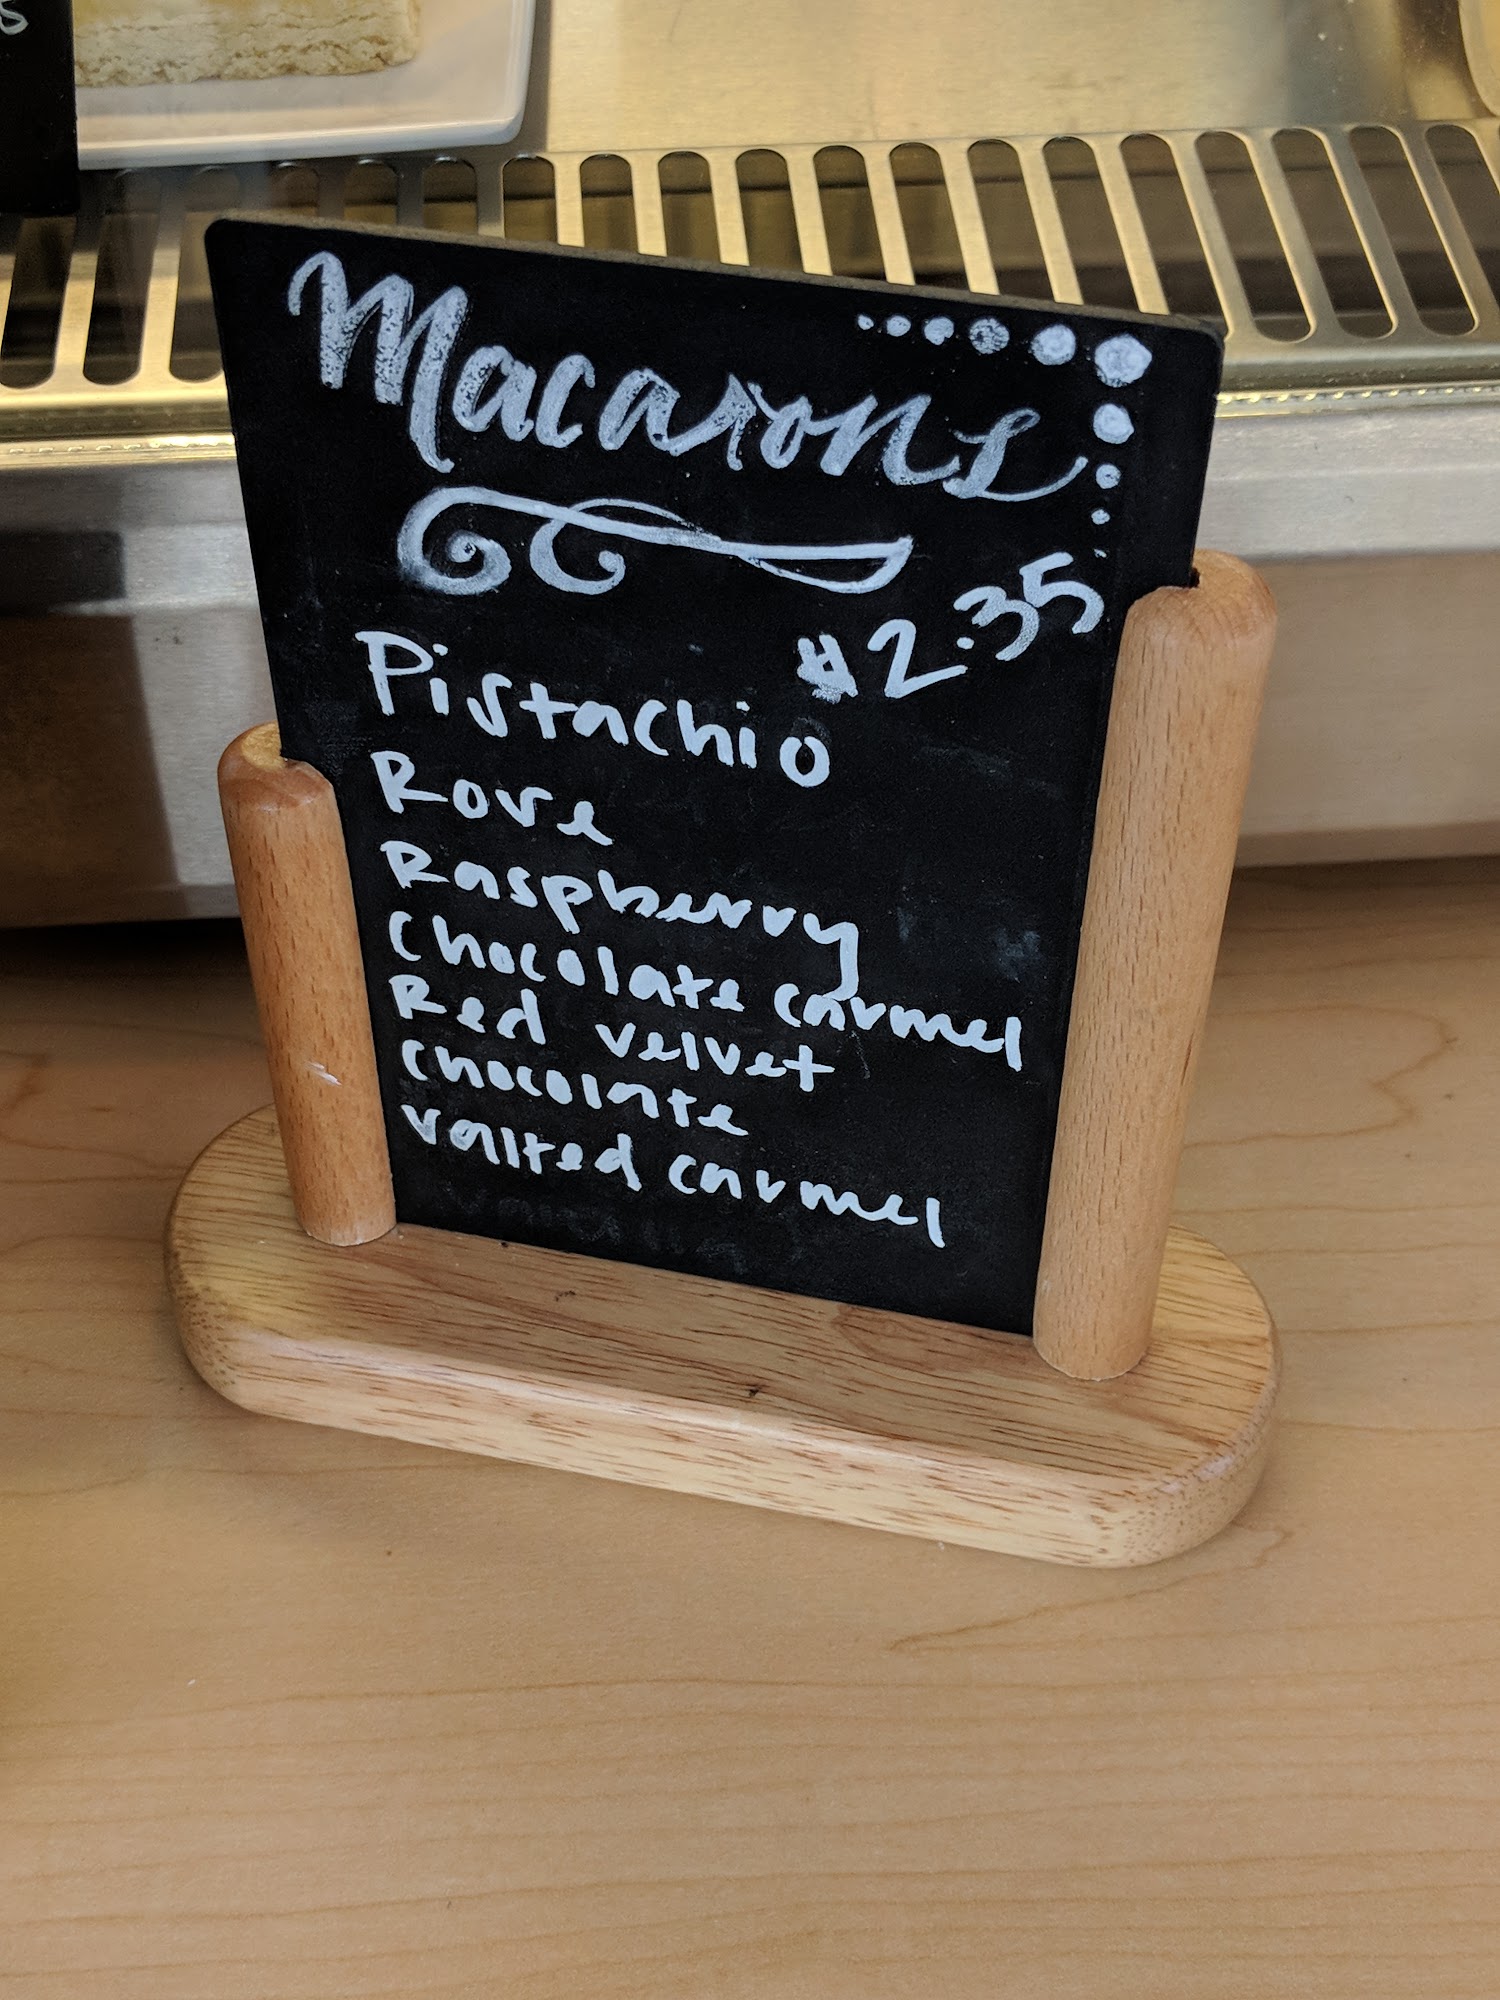 Macarons
$2.35
Pistachio
Rose
Raspberry
Chocolate caramel
Red velvet
chocolate
salted caramel